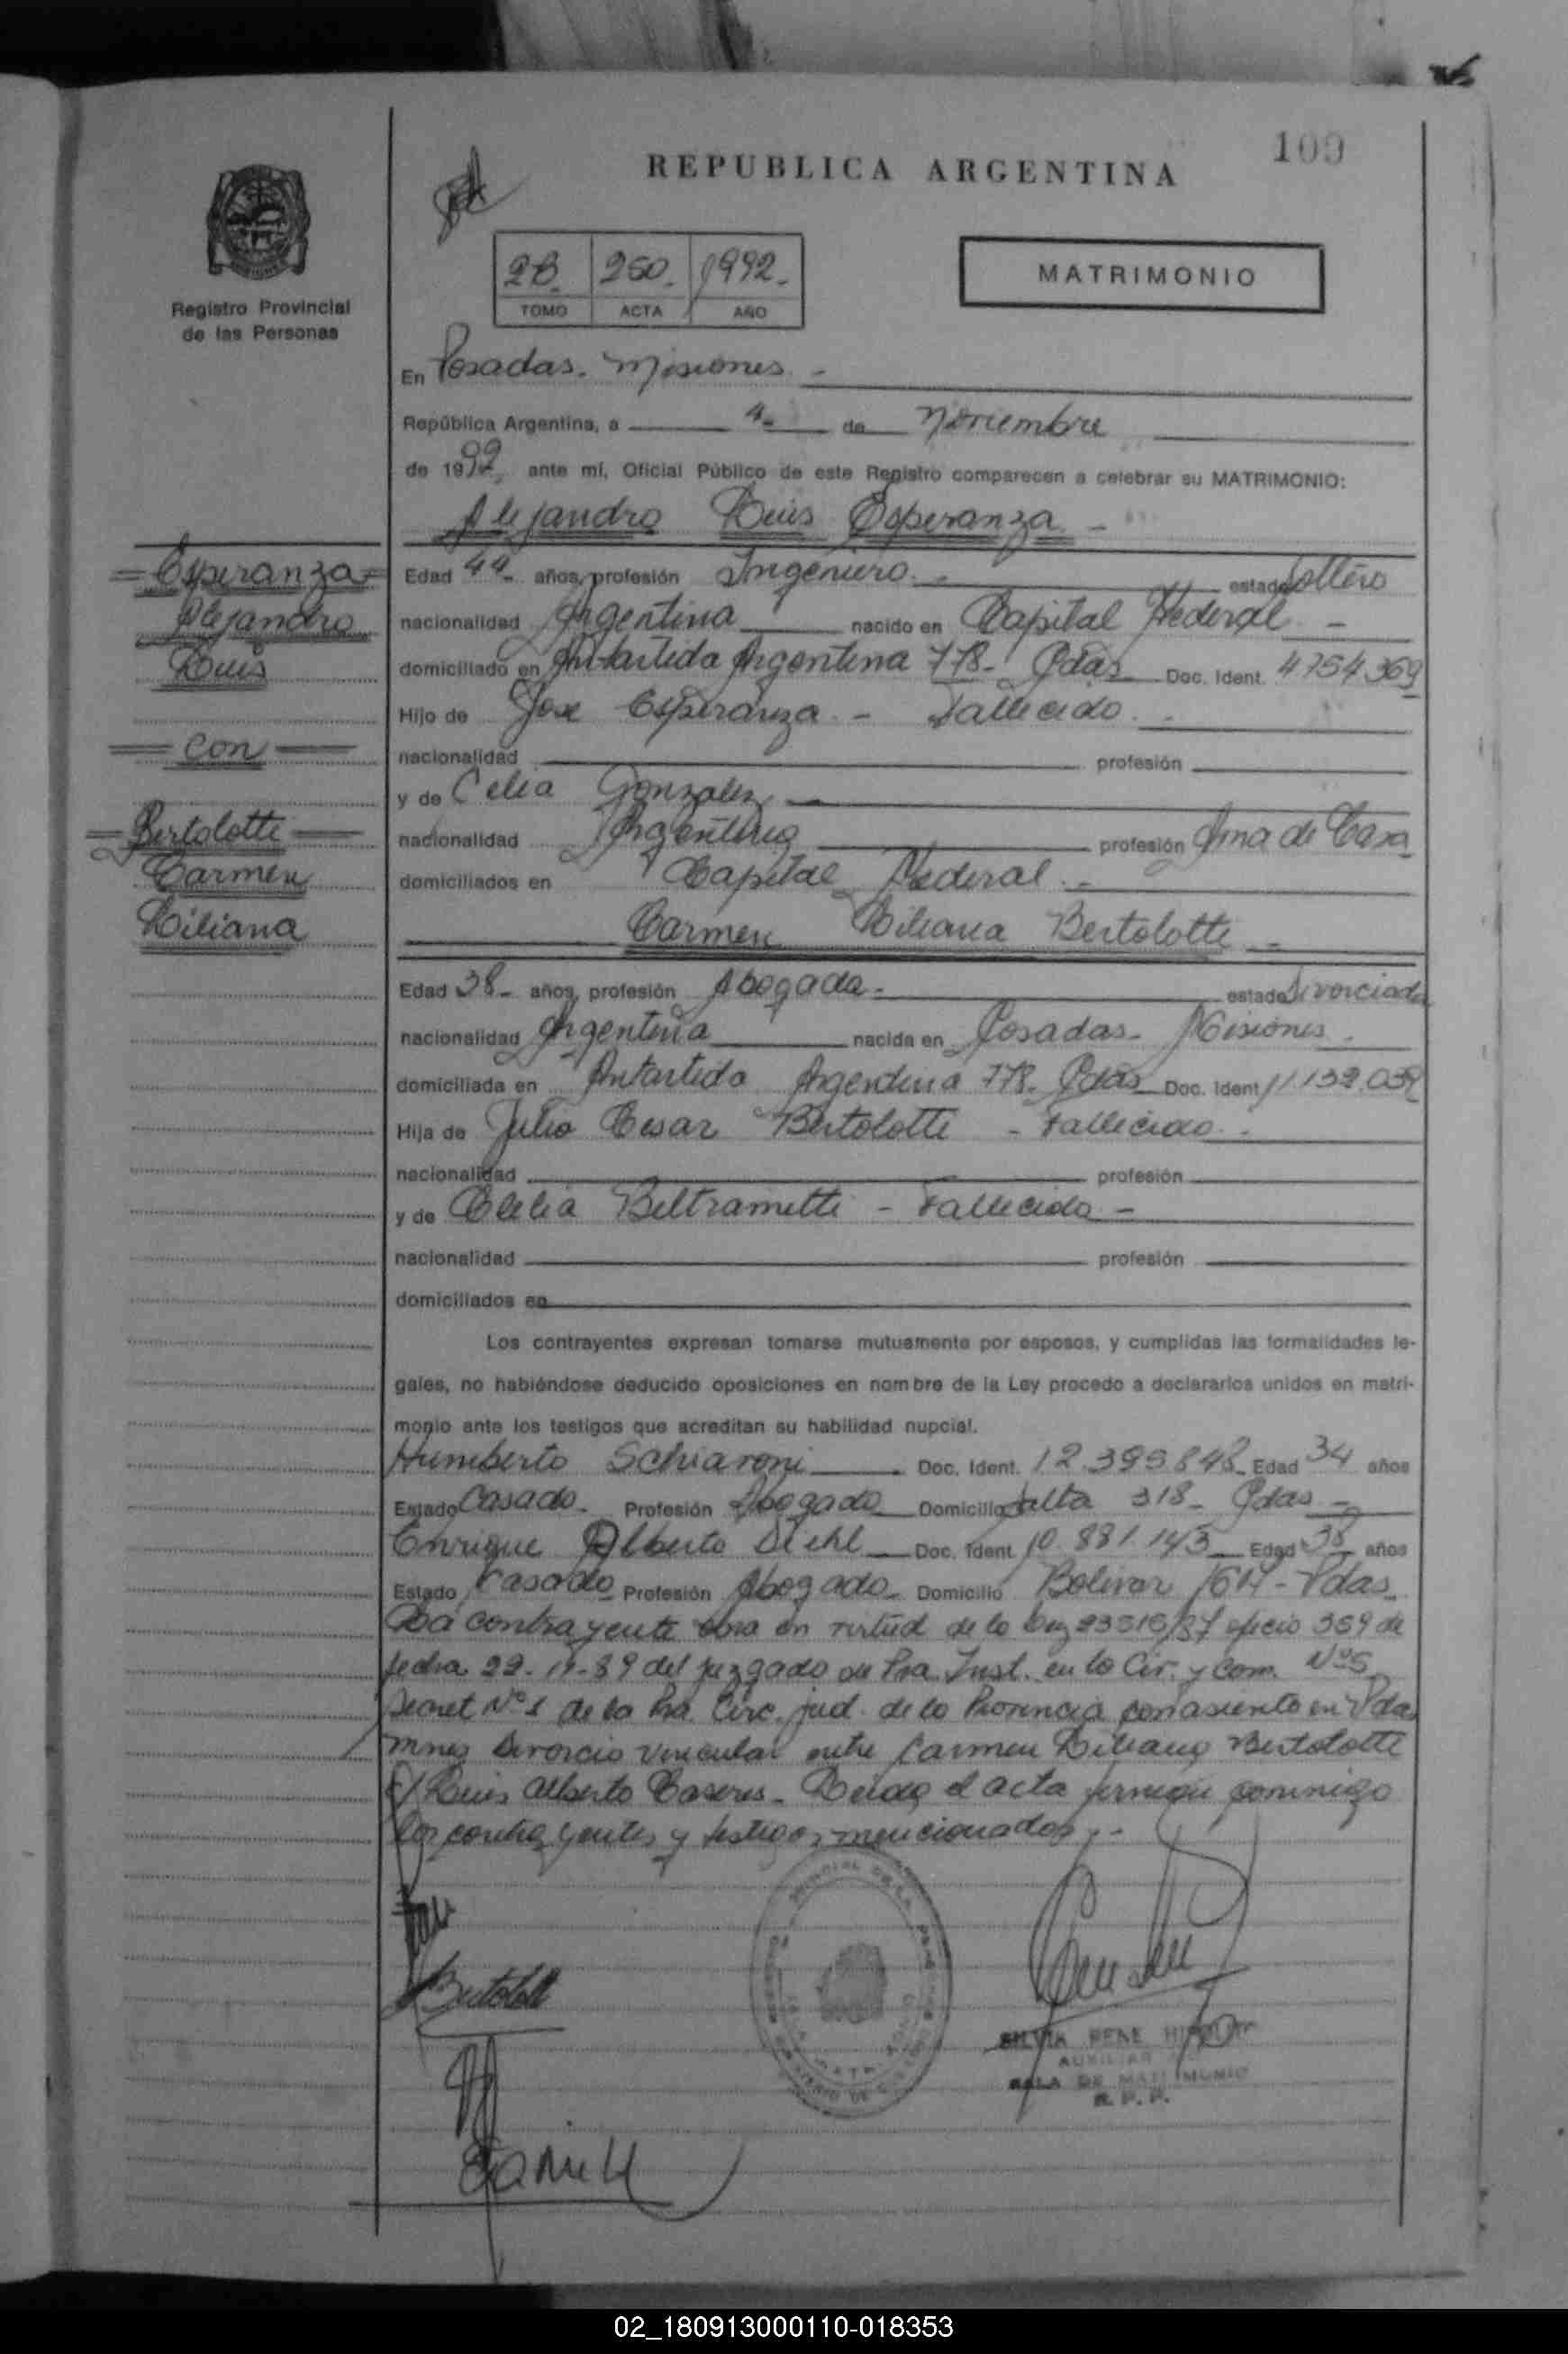 109
REPUBLICA ARGENTINA
Registro Provincial
de las Personas
2B. 250. 1992.-
TOMO ACTA AÑO
MATRIMONIO
En Posadas. Misiones -
República Argentina, a 4- de Noviembre
de 1992, ante mí, Oficial Público de este Registro comparecen a celebrar su MATRIMONIO:
Alejandro Luis Esperanza -
Esperanza
Alejandro
Luis
con
Bertolotti
Carmen
Liliana
Edad 44- años, profesión Ingeniero.- estado Soltero
nacionalidad Argentina nacido en Capital Federal -
domiciliado en Antartida Argentina 778- Pdas Doc. Ident. 4754369
Hijo de Jose Esperanza - Fallecido.
nacionalidad profesión
y de Celia Gonzalez
nacionalidad Argentina profesión Ama de Casa
domiciliados en Capital Federal.-
Carmen Liliana Bertolotti -
Edad 38- años, profesión Abogada.- estado Divorciada
nacionalidad Argentina nacida en Posadas- Misiones.
domiciliada en Antartida Argentina 778- Pdas Doc. Ident 11.139.039
Hija de Julio Cesar Bertolotti - Fallecido.-
nacionalidad profesión
y de Clelia Beltrametti - Fallecida -
nacionalidad profesión
domiciliados en
Los contrayentes expresan tomarse mutuamente por esposos, y cumplidas las formalidades le-
gales, no habiéndose deducido oposiciones en nombre de la Ley procedo a declararlos unidos en matri-
monio ante los testigos que acreditan su habilidad nupcial.
Humberto Schiavoni Doc. Ident. 12.399.848- Edad 34 años
Estado Casado- Profesión Abogado Domicilio Salta 318- Pdas -
Enrique Alberto Diehl Doc. Ident 10.881.143 Edad 38 años
Estado Casado Profesión Abogado- Domicilio Bolivar 1614- Pdas
La contrayente en virtud de la Ley 23515/87 oficio 359 de
fecha 22-11-89 del juzgado de Pra. Inst. en lo Civ. y Com. Nº5
Secret Nº1 de la Pra. Circ. jud. de la Provincia con asiento en Pdas
mnes Divorcio vincular entre Carmen Liliana Bertolotti
c/ Luis Alberto Caseres- Leida el acta firman conmigo
los contrayentes y testigos mencionados.-
Bertolotti
AUXILIAR
SALA DE MATRIMONIO
R. P. P.
02_180913000110-018353